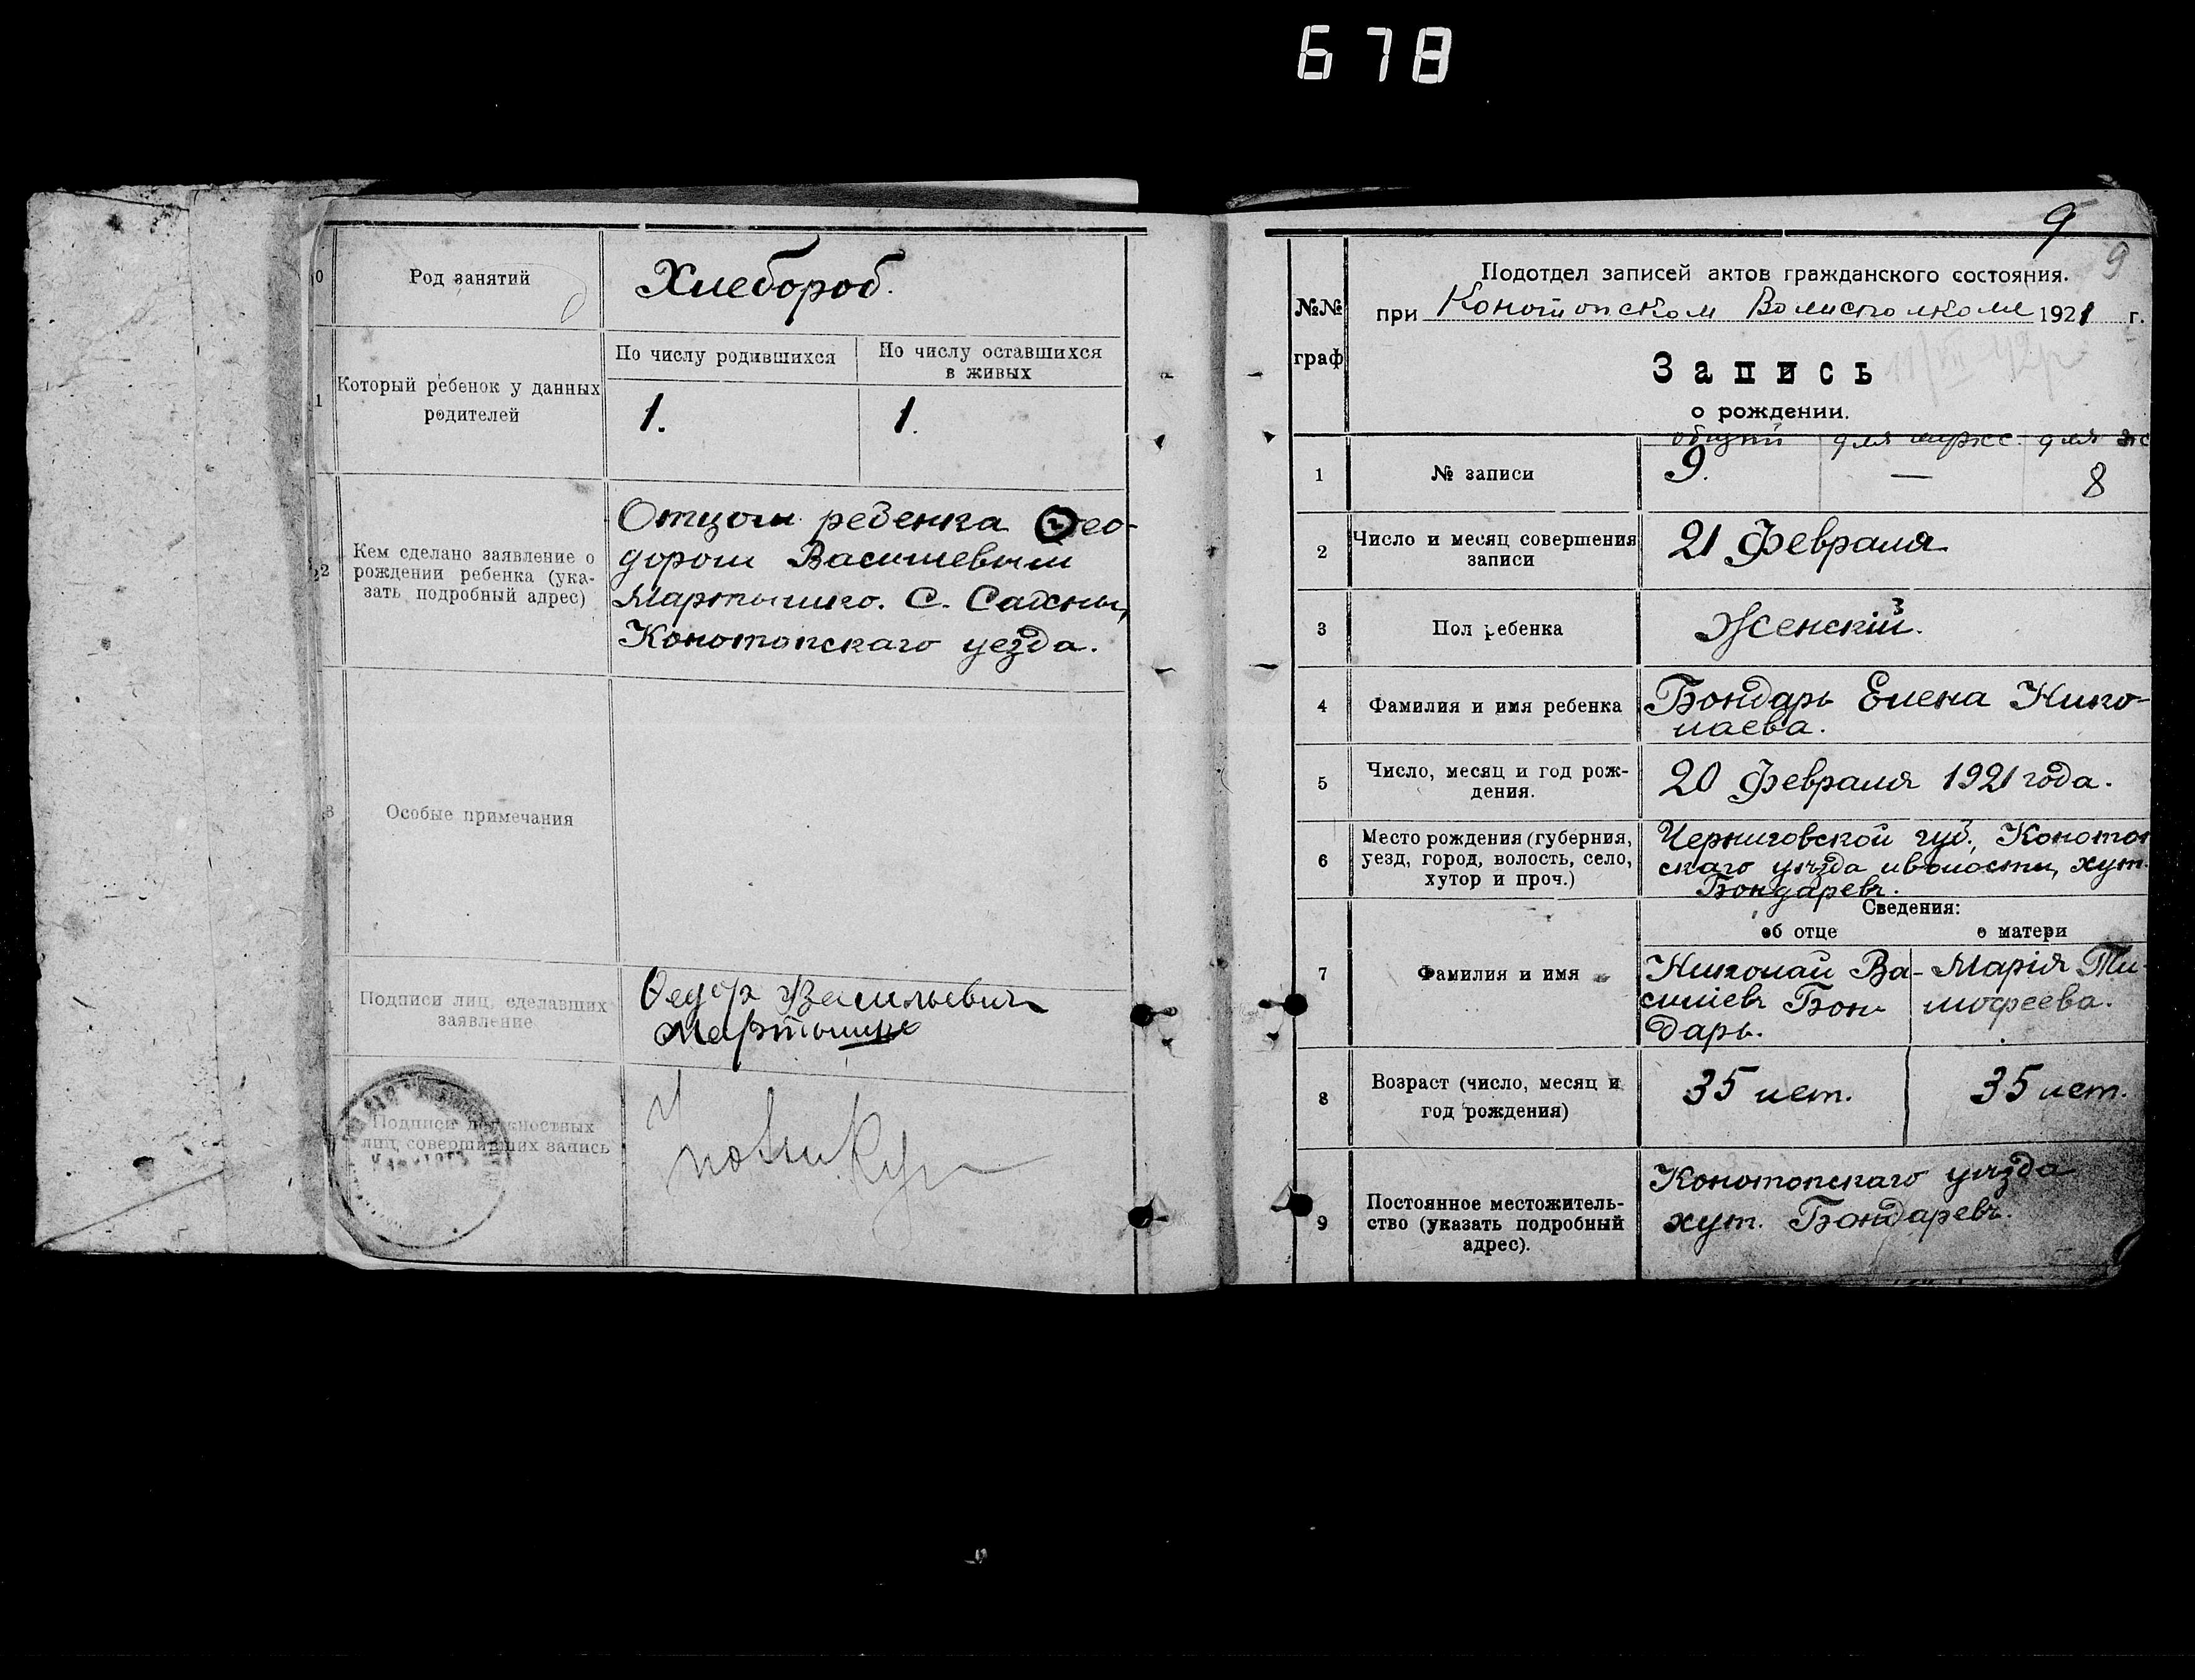 678
Род занятий
Хлебороб.
Который ребенок у данных
родителей
По числу родившихся
По числу оставшихся
в живых
1.
1.
Кем сделано заявление о
рождении ребенка (ука-
зать подробный адрес)
Отцом ребенка Фео-
дором Васильевым
Мартышко. С.
Конотопскаго уезда.
Особые примечания
Подписи лиц, сделавших
заявление
Федор Васильевич
Мартышко
Подписи должностных
лиц, совершивших запись
9
9
№№
граф
Подотдел записей актов гражданского состояния.
при Конотопском Волисполкоме 1921 г.
Запись
о рождении.
общий для мужс. для же
1
№ записи
9.
—
8
2
Число и месяц совершения
записи
21 Февраля
3
Пол ребенка
Женскій.
4
Фамилия и имя ребенка
Бондарь Елена Нико-
лаева.
5
Число, месяц и год рож-
дения.
20 Февраля 1921 года.
6
Место рождения (губерния,
уезд, город, волость, село,
хутор и проч.)
Черниговской губ., Конотоп
скаго уѣзда и волости, хут.
Бондаревъ.
Сведения:
об отце
о матери
7
Фамилия и имя
Николай Ва-
силіевъ Бон-
дарь.
Марія Ти-
мофеева.
8
Возраст (число, месяц и
год рождения)
35 лет.
35 лет.
9
Постоянное местожитель-
ство (указать подробный
адрес).
Конотопскаго уѣзда
хут. Бондаревъ.